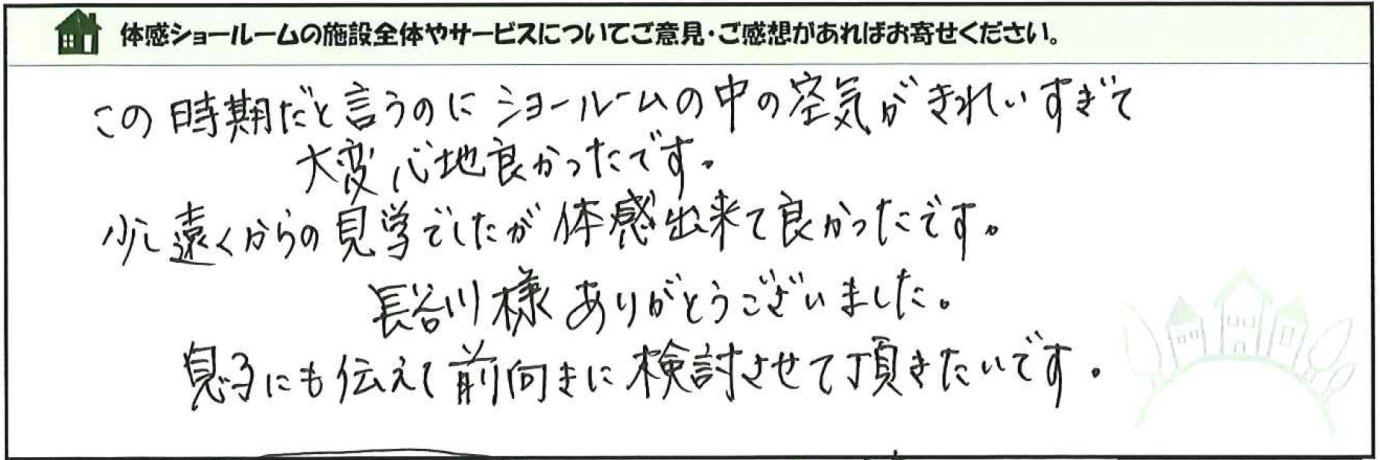 体感ショールームの施設全体やサービスについてご意見・ご感想があればお寄せください。
この時期だと言うのにショールームの中の空気がきれいすぎて
大変心地良かったです。
少し遠くからの見学でしたが体感出来て良かったです。
長谷川様ありがとうございました。
息子にも伝えて前向きに検討させて頂きたいです。